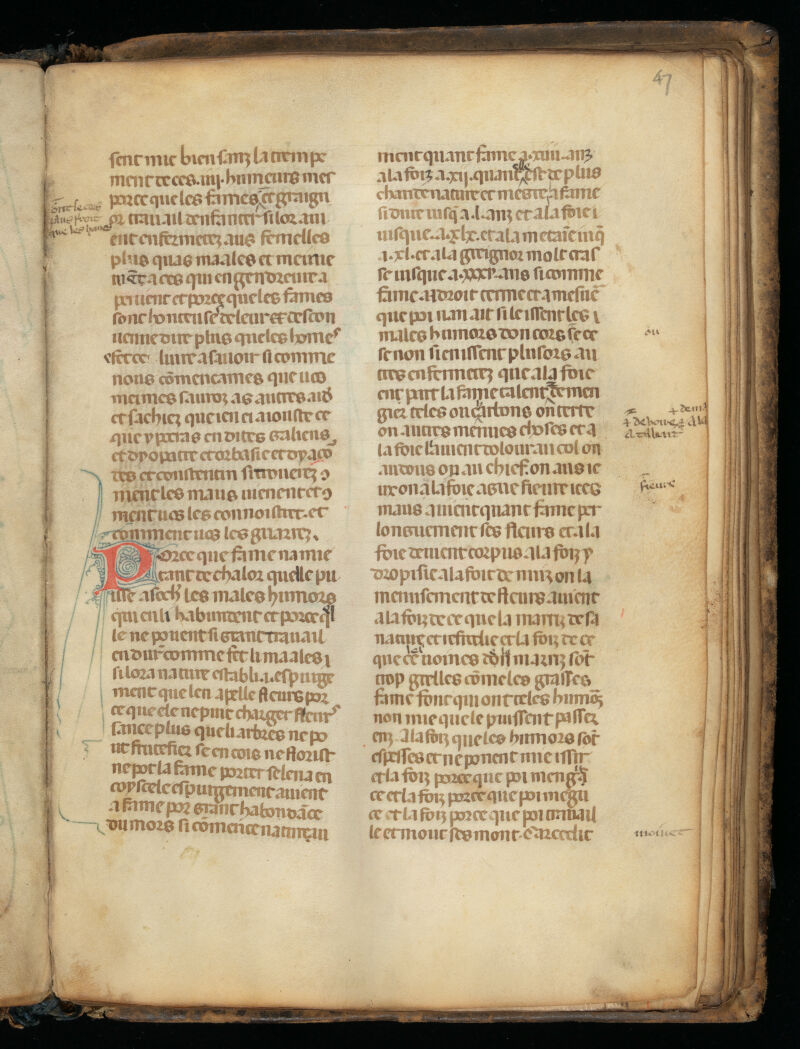 47
sent mie bien sanz la trempe
ment de ces .iiij. humeurs mes
porce que les fames et graign
or trauail denfanter si lor aui
ent enfermetez aus femelles
plus quas maales et meime
ment a ces qui engendreure a
partienent et porce que les fames
sont honteuse de leur et descon
uenue dire plus que les homes
cest ce liure asauoir si comme
nous cõmencames que uos
meimes sauroz as autres aid
et sachiez que ien ei aiouste ce
que y preis en dites Galiens
et dypocrate et orbasic et dyaco
des et constentin si troueriz
ment les maus uienent et
ment uos les connoistrer et
comment uos les guarrez.
Porce que fame na mie
tant de chalor quelle pu
isse asech' les males humors
qui en li habundent et porce q̃l
le ne pouent si grant trauail
endurer comme fet li maales
si lor a nature establi .i. espurge
ment que len apelle fleurs por
ce que ele ne puit charger fleur
sance plus que li arbres ne po
ut fructefier se encois ne florist
ne pot la fame porter se len a en
cors se ele espurgement auient
a fame por grant habondãce
dumors si cõmence naturau
ment quant fame a .xiiii. anz
a la foiz a .xij. quant est de plus
chaude nature et meste a fame
si dure iusq̃ a .l. anz et a la foie
iusque a .xlv. et a la metaie iusq̃
a .xl. et a la greignor molt cras
se iusque a .xxxv. ans si comme
fame adroit terme et a mesure
que poi nan ait si le issent les
males humors don cors se ce
se non si en issent plusors au
tres enfermetez que a la foie
ent part la fame talent de men
gier teles ou carbons on terre
on autres menues choses et a
la foie li auient dolour au col ou
au dous ou au chief on aus ie
ux on a la foie ague fieure ices
maus auient quant fame per
longuement ses fleurs et a la
foie deuient corpus a la foiz y
dropisie a la foiz de nuiz on la
menuisement de fleurs auient
a la foiz de ce que la marriz de sa
nature et refroidie et la foiz de ce
que ce uoines don marriz sõt
trop greles cõme les grasses
fame sont qui ont teles humõs
non mie que le puissent passer
enz. A la foiz que les humors sõt
espesses et ne ponent mie issir
et la foiz porce que poi menga
ce et la foiz porce que poi megu
ce et la foiz porce que poi trauail
le et mout ses mont. Car ce dit
fieure